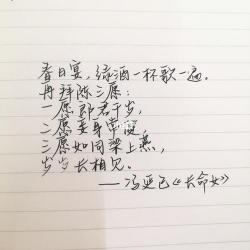 春日宴，绿酒一杯歌一遍。
再拜陈三愿：
一愿郎君千岁，
二愿妾身常健
三愿如同梁上燕，
岁岁长相见。
——冯延巳《长命女》